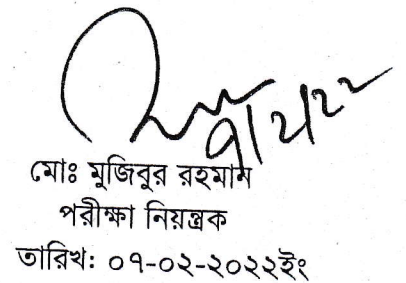 ৭/২/২২
মোঃ মুজিবুর রহমান
পরীক্ষা নিয়ন্ত্রক
তারিখ: ০৭-০২-২০২২ইং